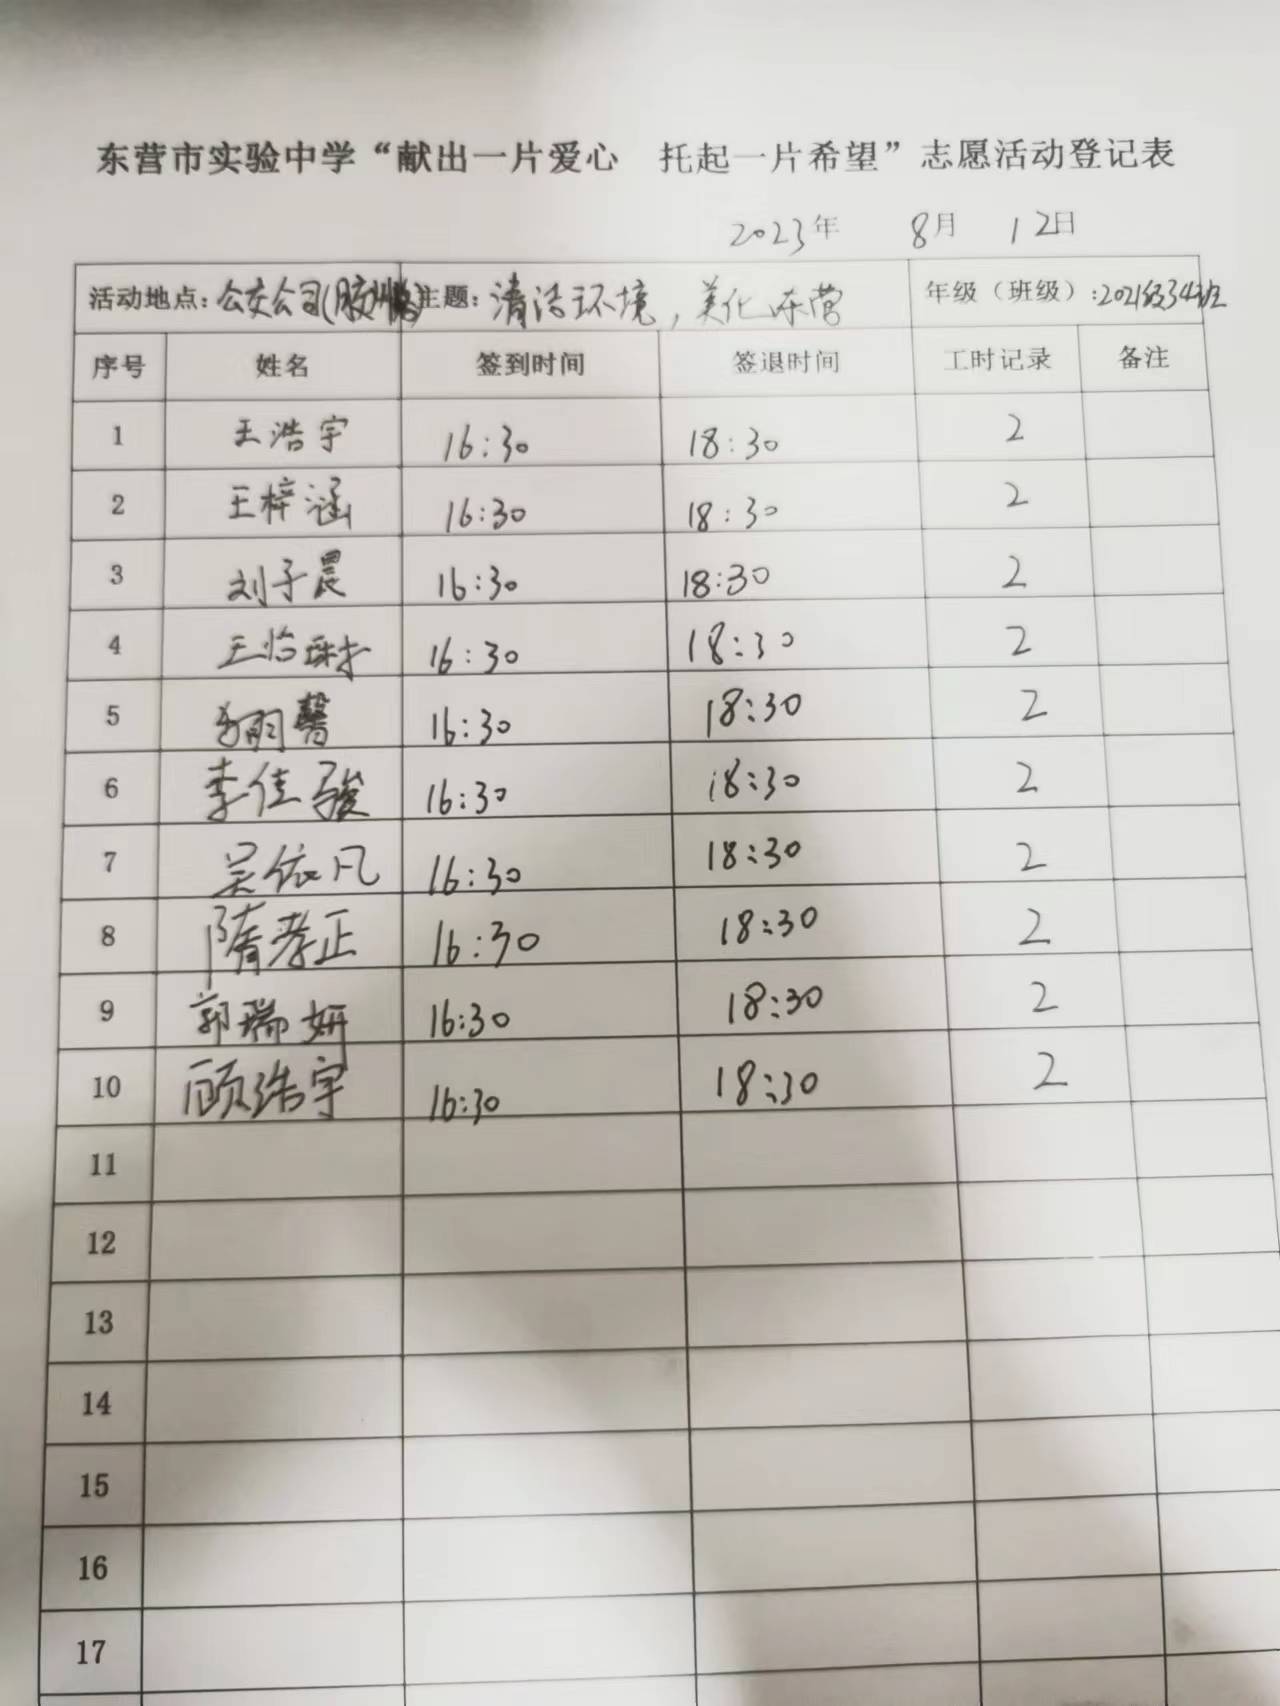 东营市实验中学“献出一片爱心 托起一片希望”志愿活动登记表
2023年 8月 12日
活动地点：公交公司(胶州路) 主题：清洁环境，美化东营 年级（班级）：2021级34班
序号 姓名 签到时间 签退时间 工时记录 备注
1 王浩宇 16:30 18:30 2
2 王梓涵 16:30 18:30 2
3 刘子晨 16:30 18:30 2
4 王怡 16:30 18:30 2
5 馨 16:30 18:30 2
6 李佳骏 16:30 18:30 2
7 吴依凡 16:30 18:30 2
8 隋孝正 16:30 18:30 2
9 郭瑞妍 16:30 18:30 2
10 顾浩宇 16:30 18:30 2
11
12
13
14
15
16
17